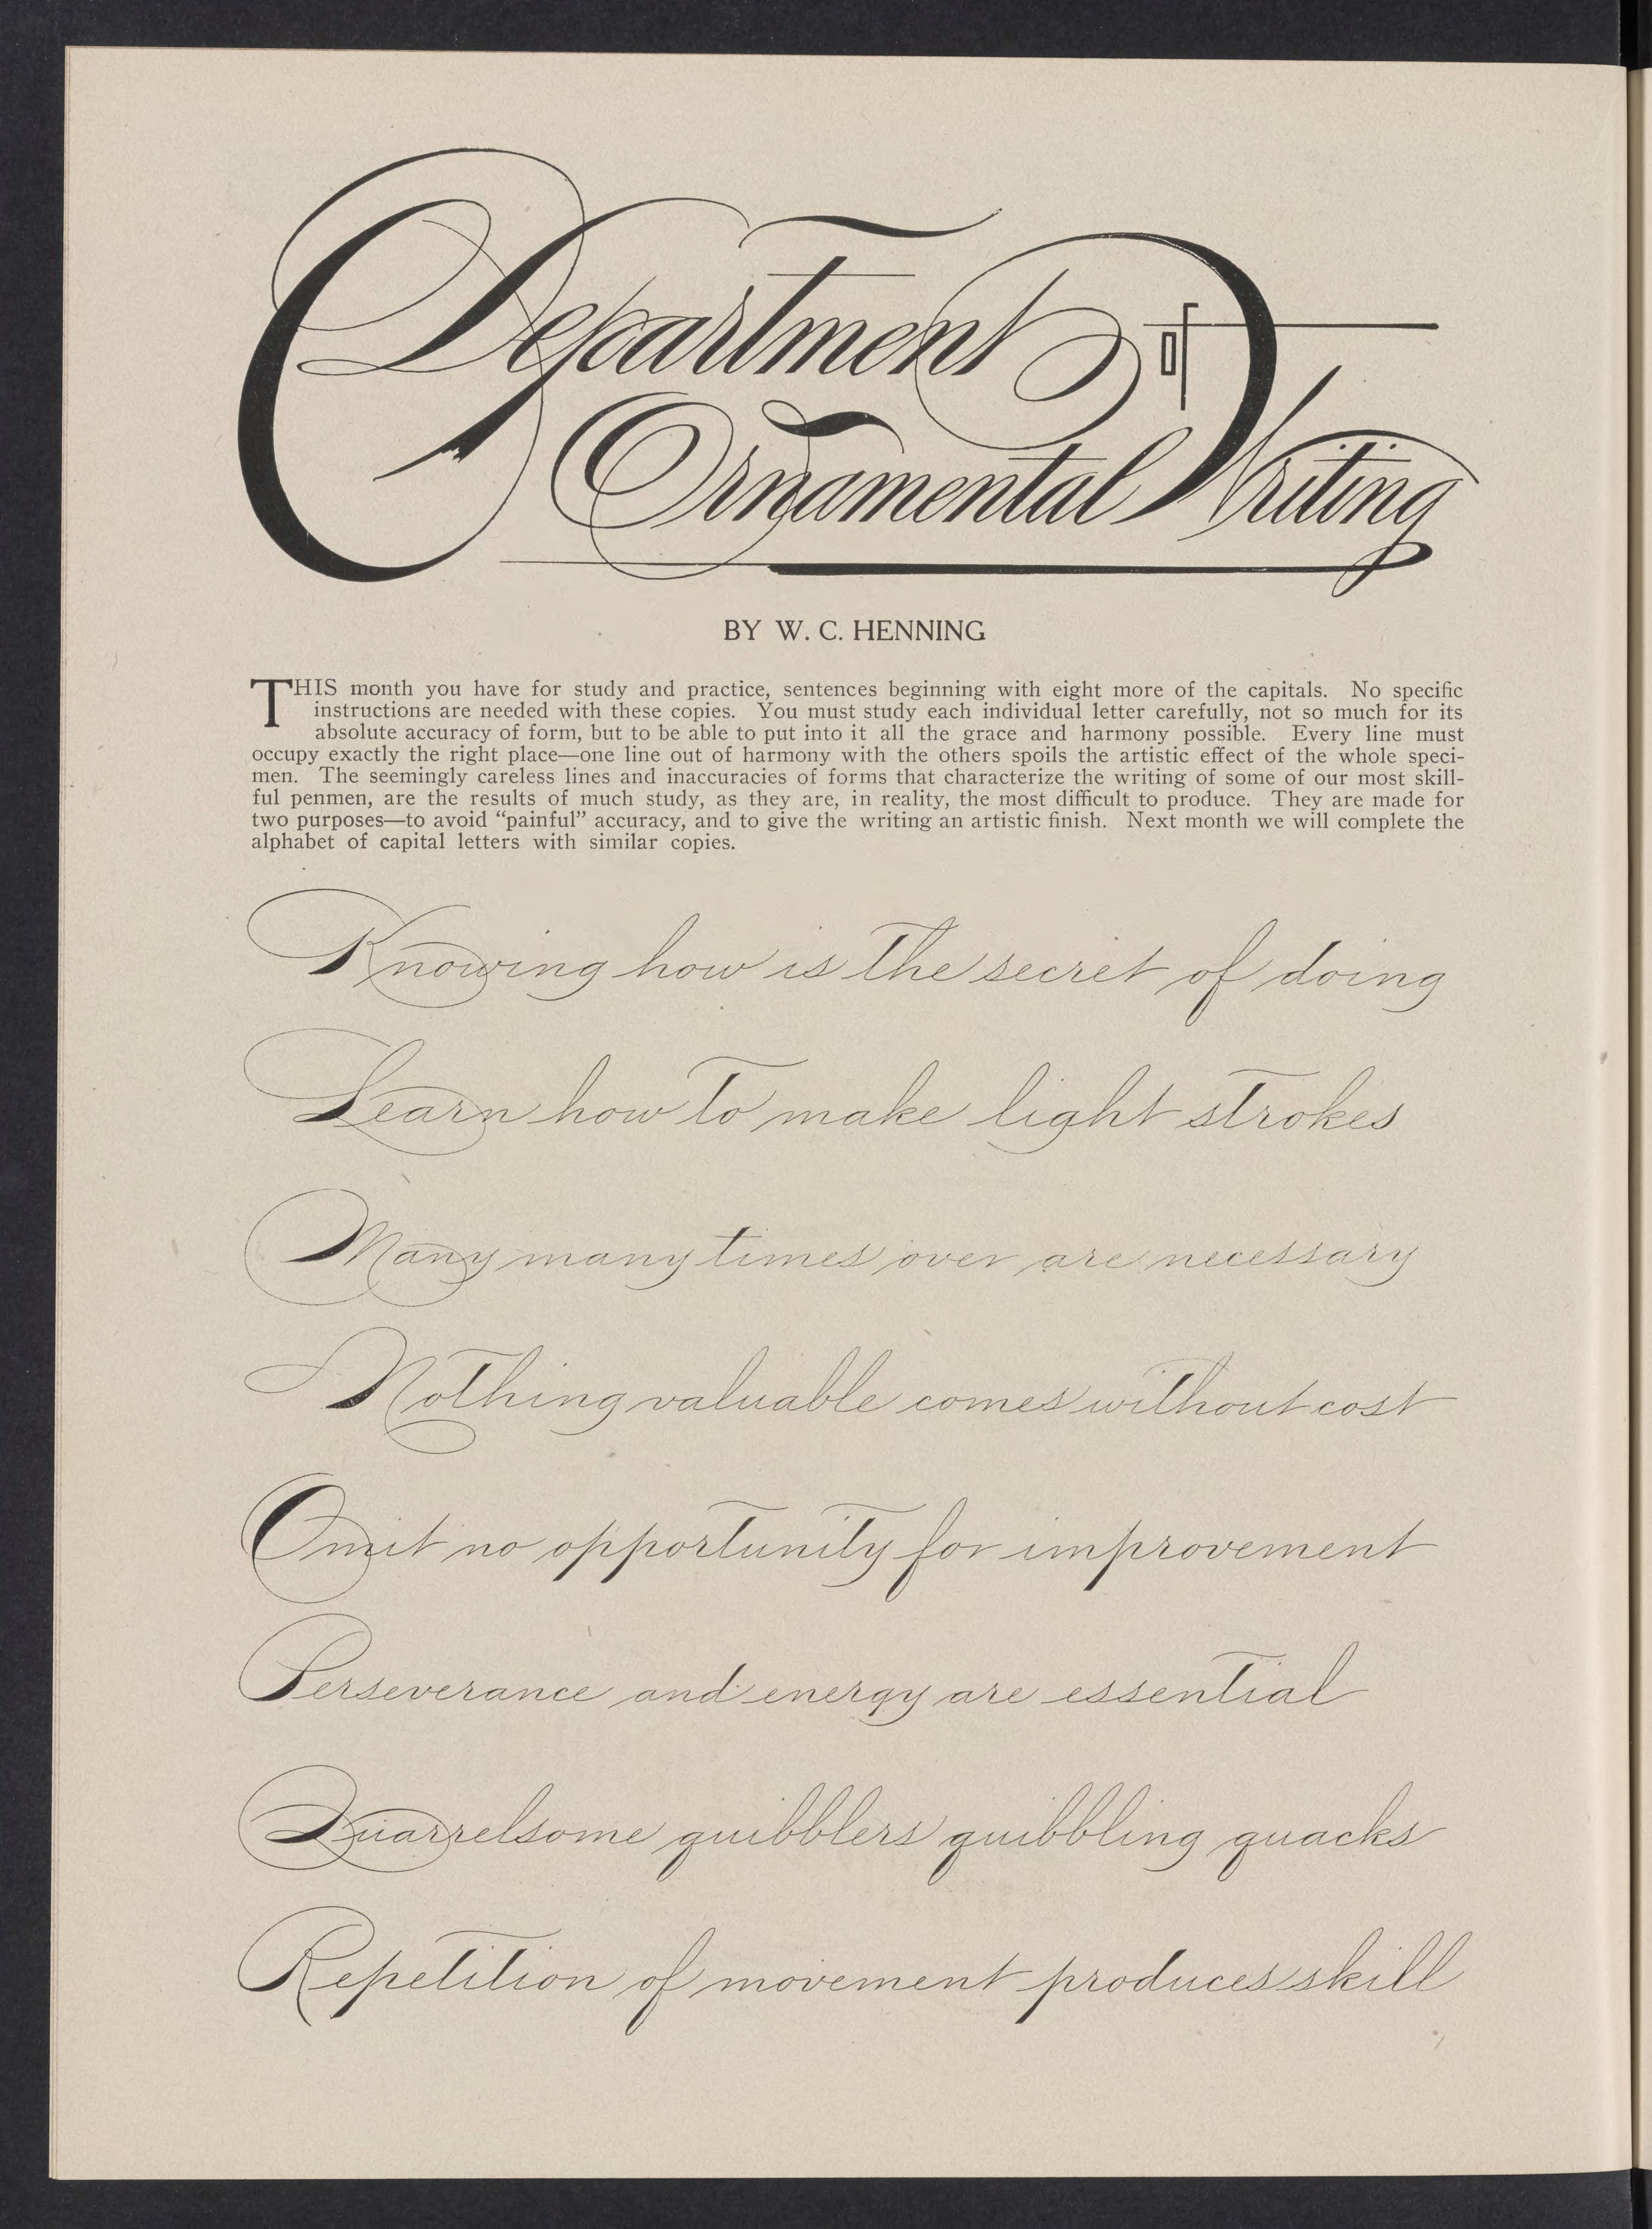 Department of
Ornamental Writing
BY W. C. HENNING
THIS month you have for study and practice, sentences beginning with eight more of the capitals. No specific
instructions are needed with these copies. You must study each individual letter carefully, not so much for its
absolute accuracy of form, but to be able to put into it all the grace and harmony possible. Every line must
occupy exactly the right place—one line out of harmony with the others spoils the artistic effect of the whole speci-
men. The seemingly careless lines and inaccuracies of forms that characterize the writing of some of our most skill-
ful penmen, are the results of much study, as they are, in reality, the most difficult to produce. They are made for
two purposes—to avoid “painful” accuracy, and to give the writing an artistic finish. Next month we will complete the
alphabet of capital letters with similar copies.
Knowing how is the secret of doing
Learn how to make light strokes
Many many times over are necessary
Nothing valuable comes without cost
Omit no opportunity for improvement
Perseverance and energy are essential
Quarrelsome quibblers quibbling quacks
Repetition of movement produces skill